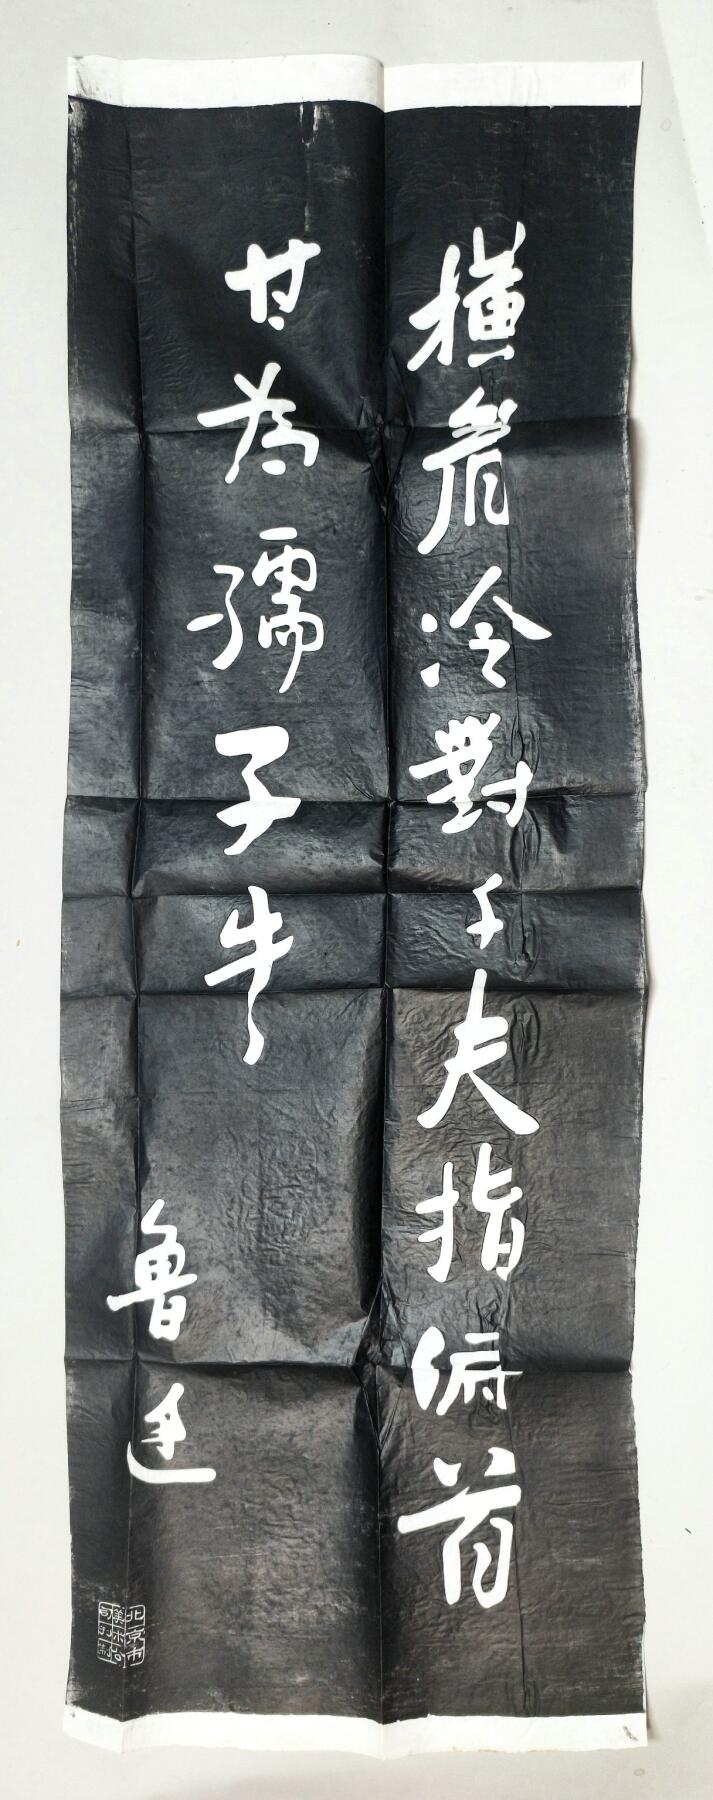 横眉冷對千夫指俯首
甘為孺子牛
魯迅
北京市